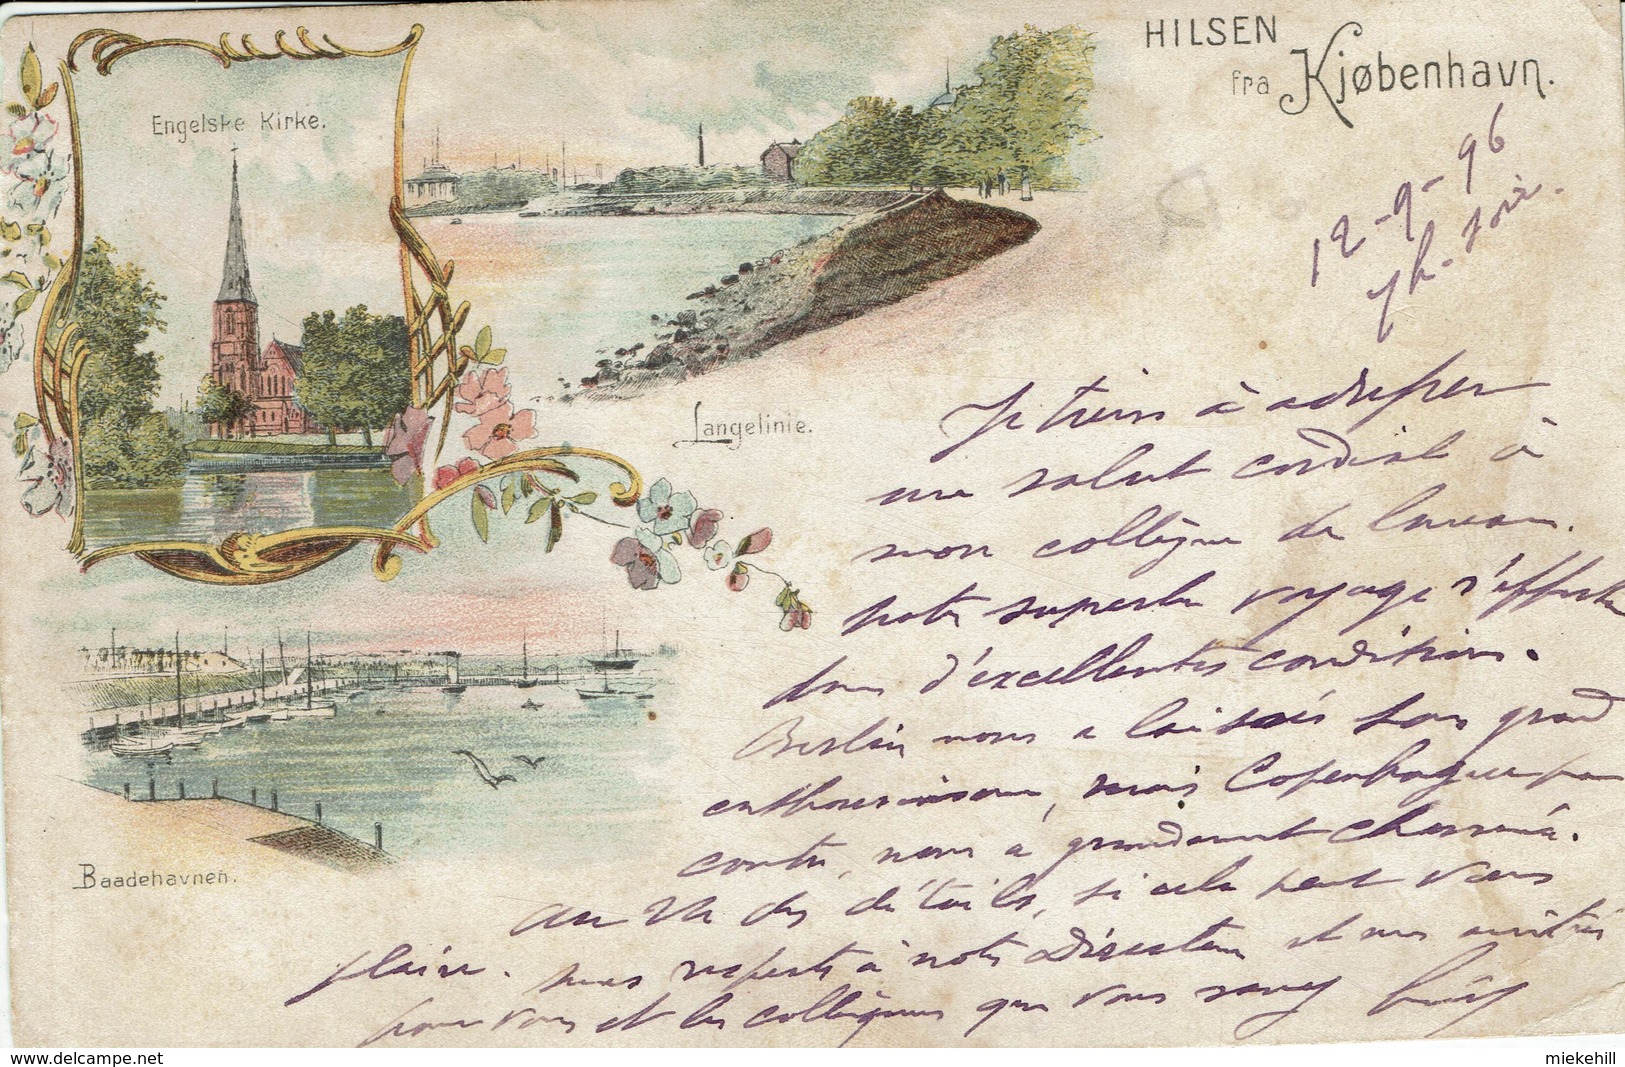 HILSEN
fra Kjøbenhavn.
Engelske Kirke.
12-9-96
7h. soir.
Je tiens à adresser
un salut cordial à
Langelinie.
mon collègue de Louvain.
notre superbe voyage s'effectue
dans d'excellentes conditions.
Berlin nous a laissés sans grand
enthousiasme, mais Copenhague par
contre, nous a grandement charmé.
Baadehavnen.
des détails, si cela peut vous
plaire. mes respects à notre Directeur et mes amitiés
pour vous et les collègues que vous savez
delcampe.net
miekehill